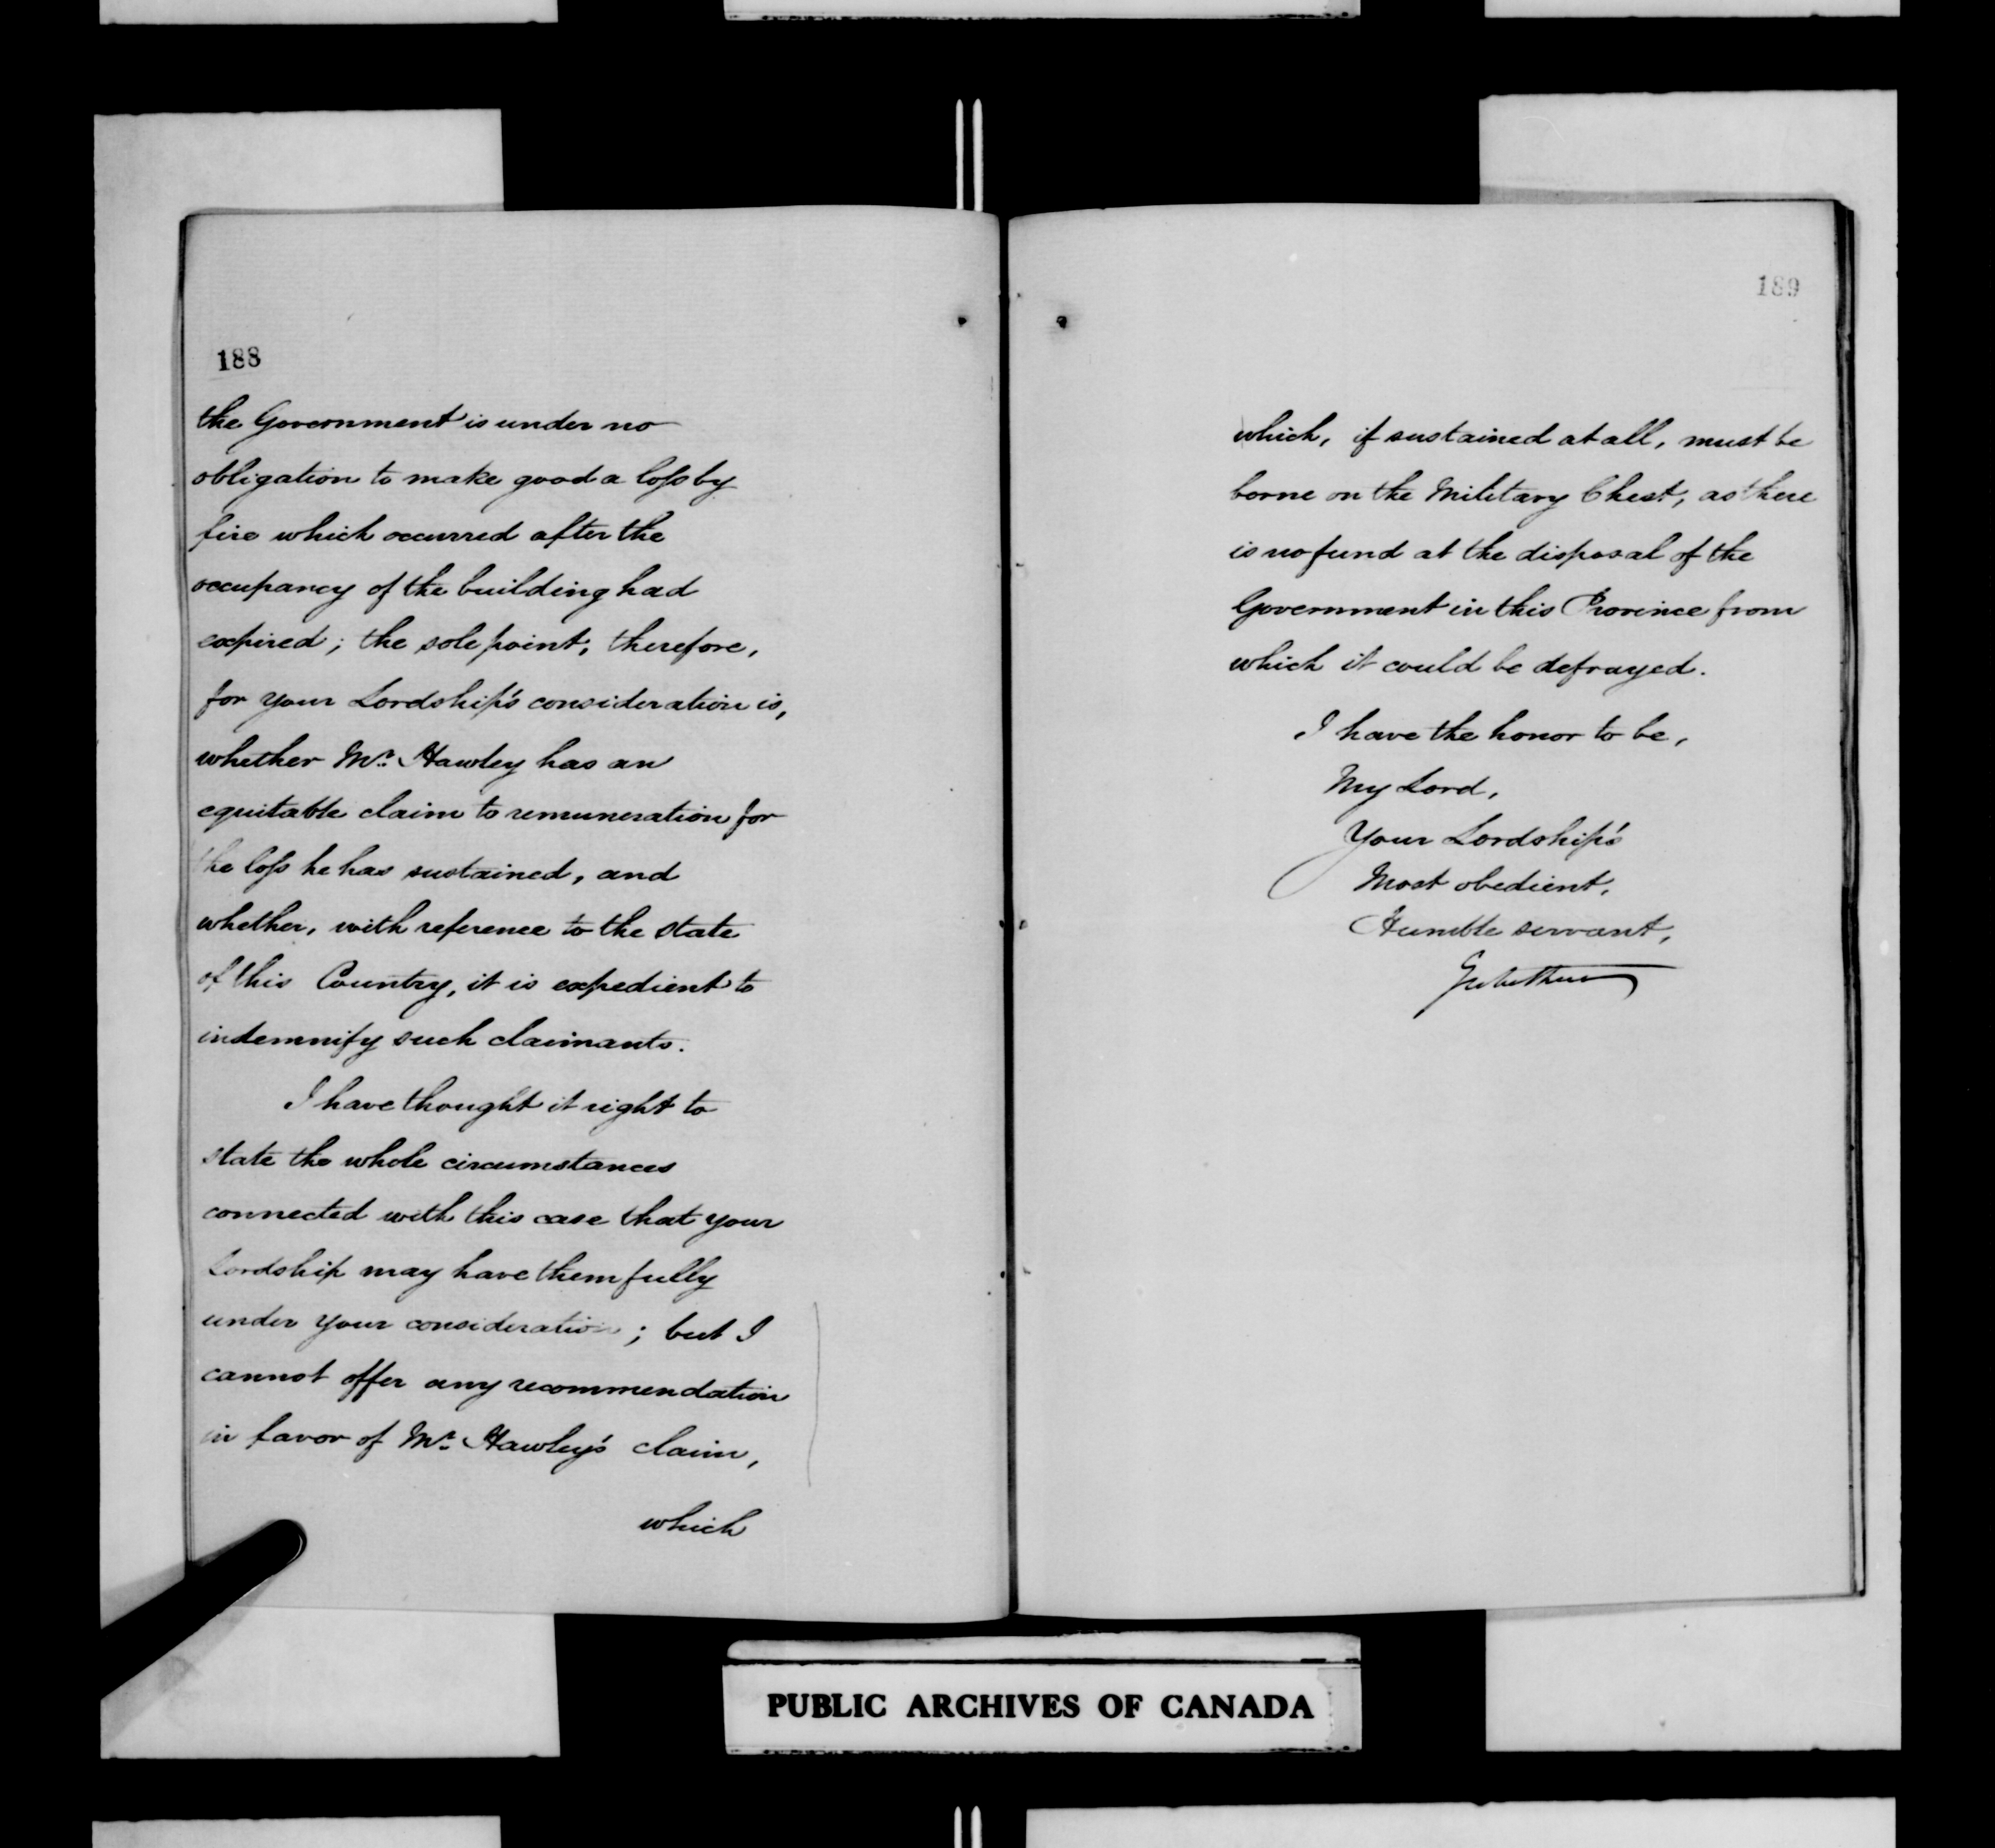 188
the Government is under no
obligation to make good a loss by
fire which occurred after the
occupancy of the building had
expired; the sole point, therefore,
for your Lordship's consideration is,
whether Mr. Hawley has an
equitable claim to remuneration for
the loss he has sustained, and
whether, with reference to the state
of this Country, it is expedient to
indemnify such claimants.
I have thought it right to
state the whole circumstances
connected with this case that your
Lordship may have them fully
under your consideration; but I
cannot offer any recommendation
in favor of Mr. Hawley's claim,
which
189
which, if sustained at all, must be
borne on the Military Chest, as there
is no fund at the disposal of the
Government in this Province from
which it could be defrayed.
I have the honor to be,
My Lord,
Your Lordship's
Most obedient,
Humble servant,
PUBLIC ARCHIVES OF CANADA